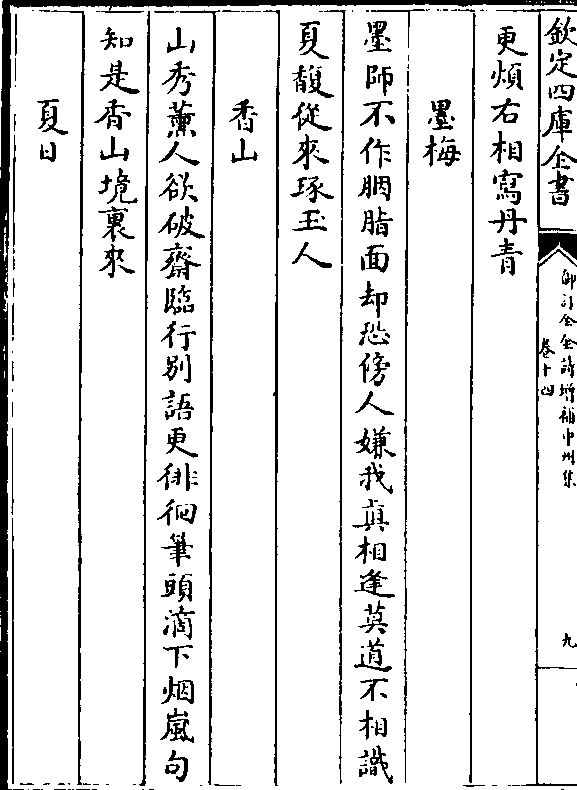 欽定四庫全書
御訂全金詩增補中州集
卷十四
九
更煩右相寫丹青
墨梅
墨師不作胭脂面却恐傍人嫌我真相逢莫道不相識
夏馥從來琢玉人
香山
山秀薰人欲破齋臨行别語更徘徊筆頭滴下烟嵐句
知是香山境裏來
夏日